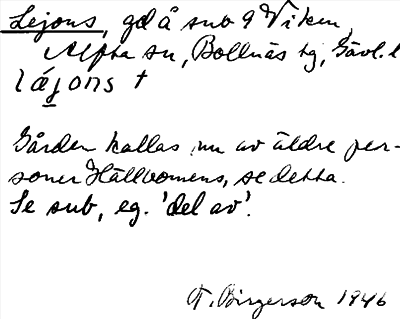 Lejons, gd å sub 9 Viken,
Alfta sn, Bollnäs tg, Gävl. l
lájons †
Gården kallas nu av äldre per-
soner Hällbomens, se detta.
Se sub, eg. 'del av'.
F. Birgerson 1946